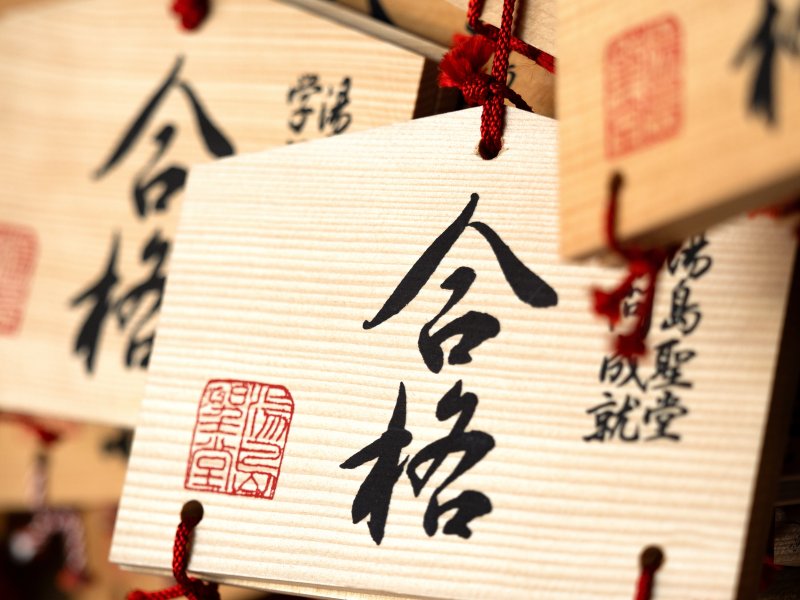 湯島聖堂
問成就
合格
湯島
聖堂
湯
学
合格